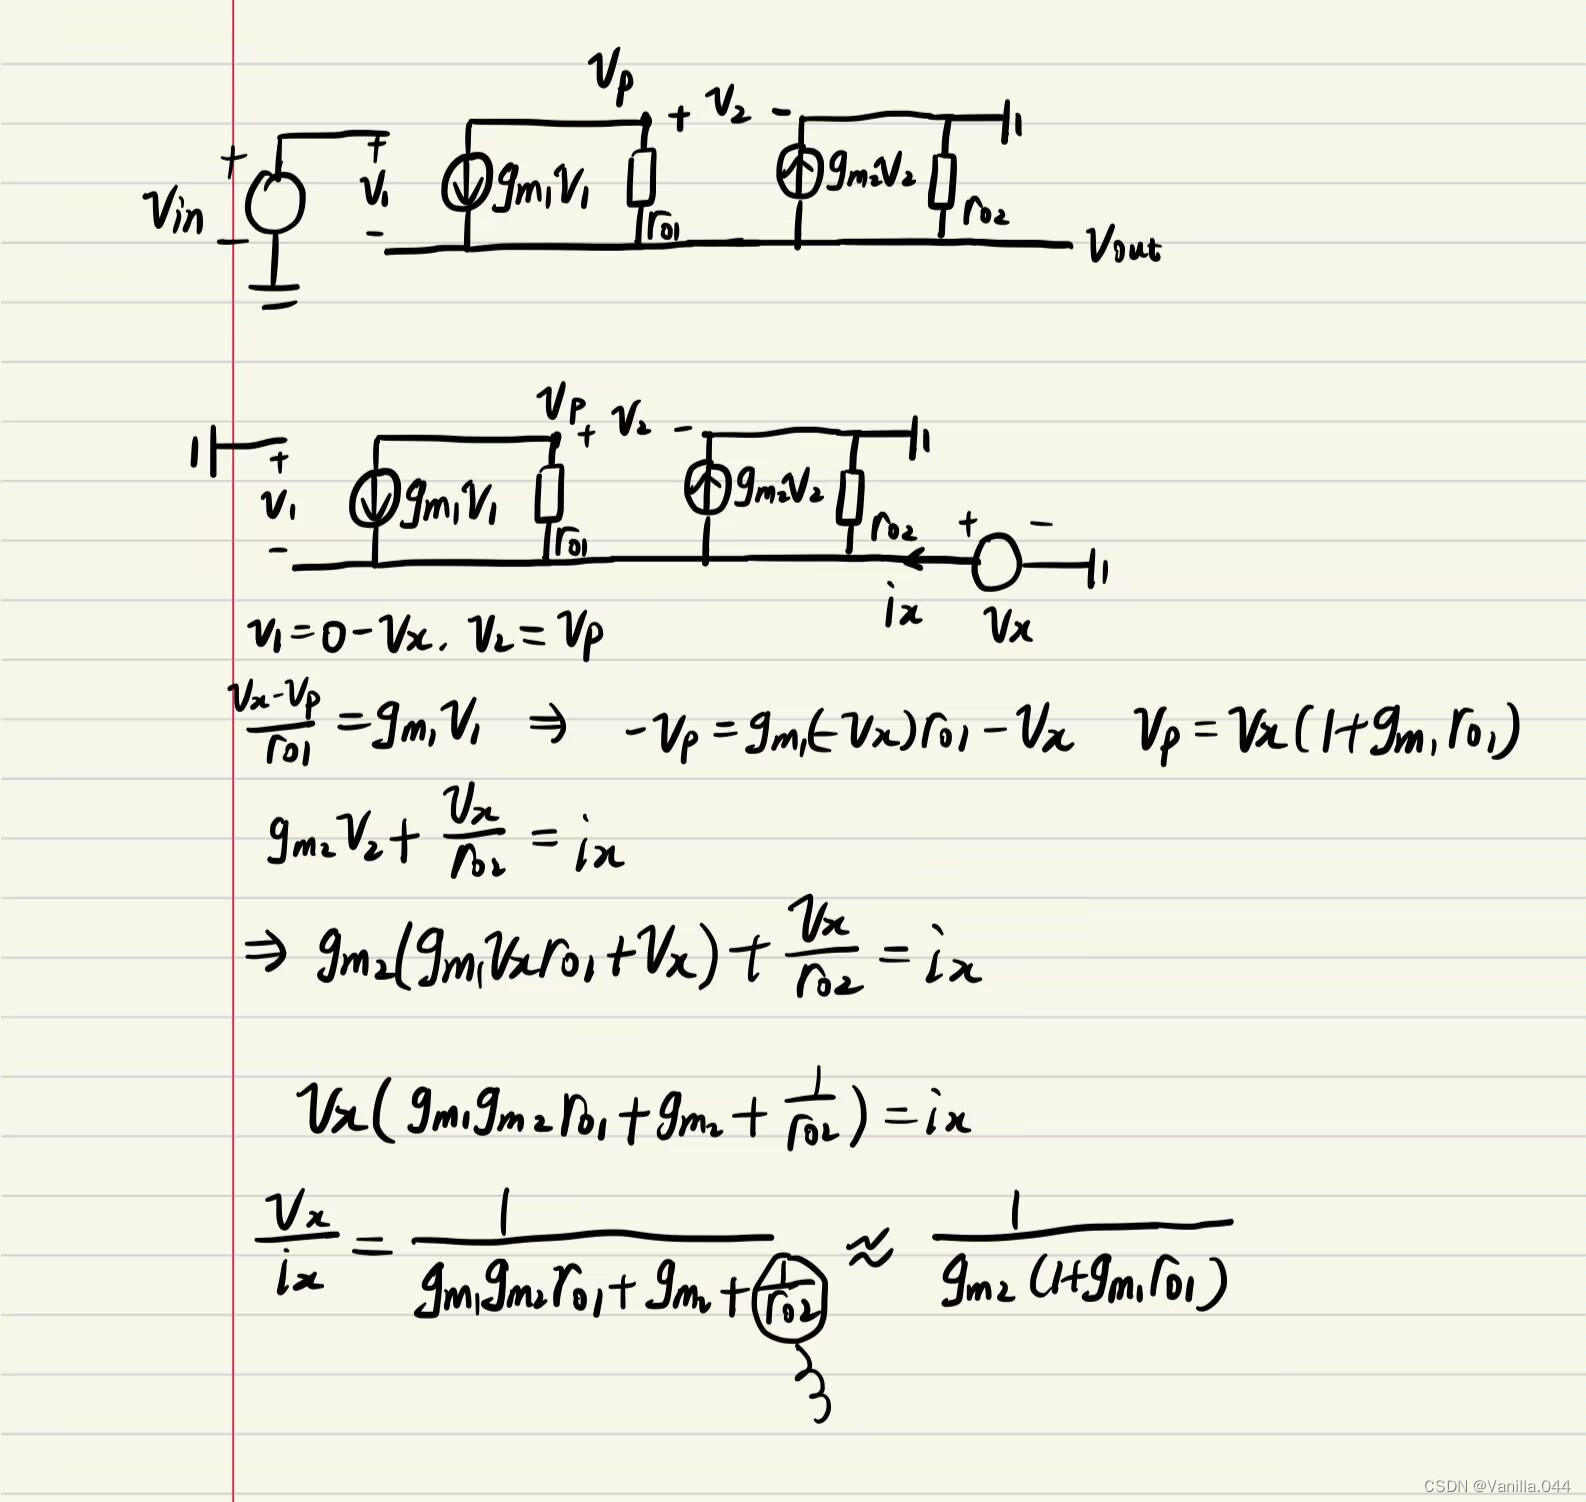 Vp + V2 -
+ + Vin V1 gm1V1 ro1 gm2V2 ro2
- - Vout
Vp + V2 -
+ V1 gm1V1 ro1 gm2V2 ro2 + -
- ix Vx
V1=0-Vx. V2=Vp
(Vx-Vp)/ro1 =gm1V1 ⇒ -Vp=gm1(-Vx)ro1-Vx Vp=Vx(1+gm1ro1)
gm2V2+Vx/ro2=ix
⇒ gm2(gm1Vxro1+Vx)+Vx/ro2=ix
Vx(gm1gm2ro1+gm2+1/ro2)=ix
Vx/ix=1/(gm1gm2ro1+gm2+1/ro2) ≈ 1/(gm2(1+gm1ro1))
CSDN @Vanilla.044